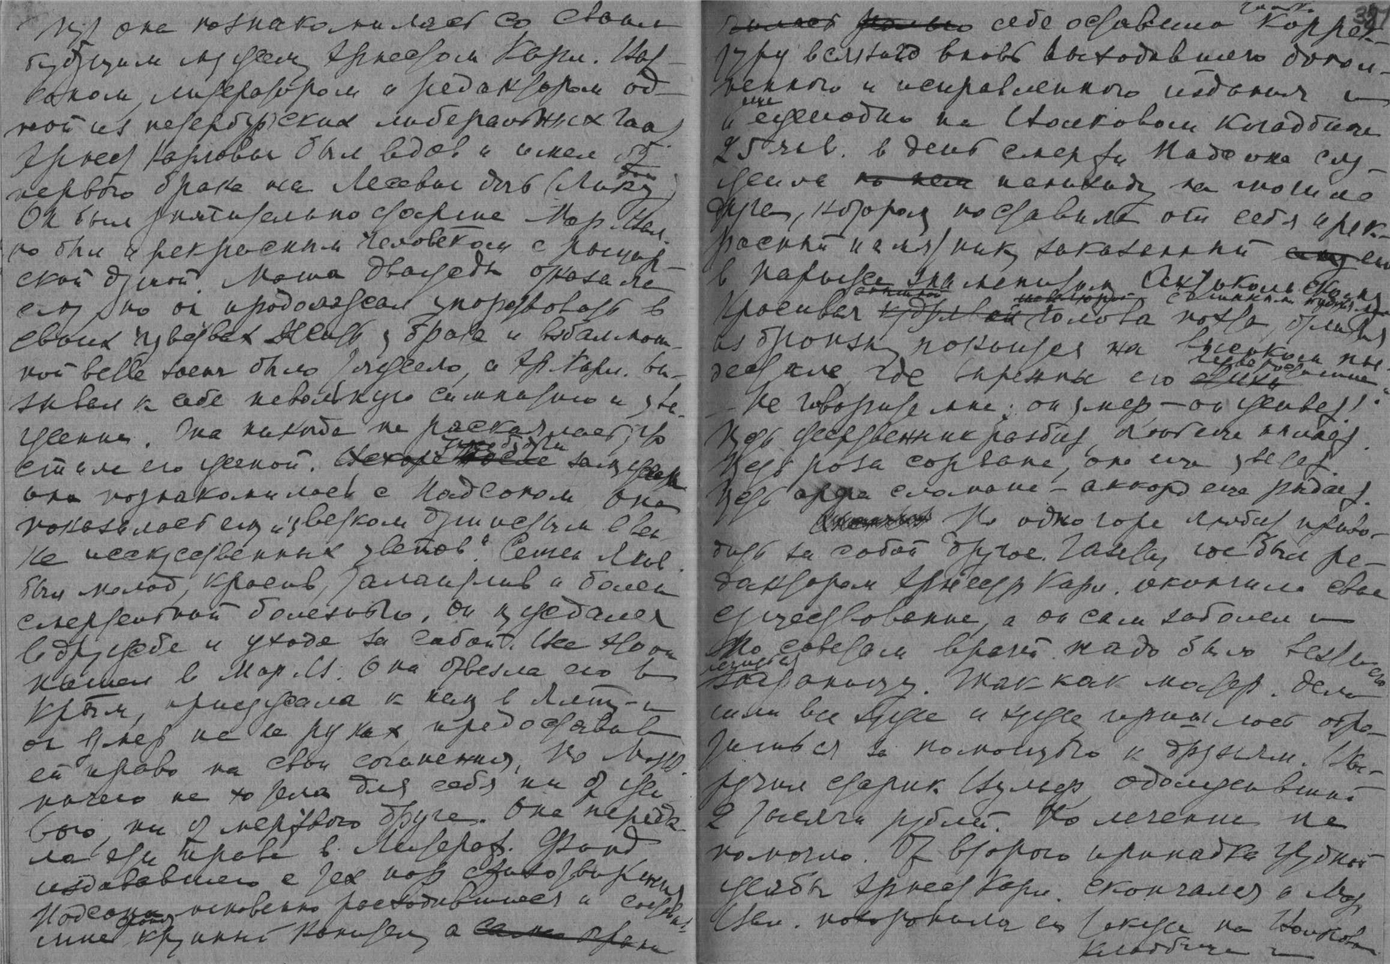 она познакомилась со своим
будущим мужем Эрнестом Карл. Ват-
соном, литератором и редактором од-
ной из петербургских либеральных газ.
Эрнест Карлович был вдов и имел от
первого брака
Он был значительно старше Мар. Вал.
но был прекрасным человеком с рыцар-
ской душой. Маша дважды отказала
ему, но он продолжал упорствовать в
своих чувствах
ной belle soeur было тяжело, а Эр. Карл. вы-
зывал к себе невольную симпатию и ува-
жение. Она никогда не раскаялась, что
стала его женой. будучи замужем
она познакомилась с Надсоном. Она
показалась ему
не искусственных цветов". Семен Яков.
был молод, красив, талантлив и болен
смертельной болезнью, он нуждался
в дружбе и уходе за собой. Все это он
нашел в Мар. В. Она отвезла его в
Крым, приезжала к нему в Ялту и
он умер на ее руках предоставив
ей право на свои сочинения. Но Маша
ничего не хотела для себя ни от жи-
вого, ни от мертвого друга. Она переда-
ла эти права в Литерат. Фонд
издававшего с тех пор стихотворения
Надсона, мгновенно расходившиеся и составив-
шие крупный капитал, а
себе оставила только коррек-
туру всякого вновь выходившего допол-
ненного и исправленного издания и
еще ежегодно на Волковом кладбище
25 янв. в день смерти Надсона слу-
жила панихиду на могиле
друга, которому поставила от себя прек-
расный памятник, заказанный
в Париже знаменитым Антокольским
Красивая голова поэта, отлитая
из бронзы, покоится на высоком пье-
дестале где вырезаны его
– Не говорите мне: он умер – он живет!
Пусть жертвенник разбит, огонь еще пылает.
Пусть роза сорвана, она еще цветет.
Пусть арфа сломана – аккорд еще рыдает.
Но одно горе любит приво-
дить за собой другое. Газета, где был ре-
дактором Эрнест Карл. окончила свое
существование, а он сам заболел и
по советам врачей надо было везти его
заграницу. Так как матер. дела
шли все хуже и хуже пришлось обра-
титься за помощью к друзьям. Вы-
ручил старик одолживший
2 тысячи рублей. Но лечение не
помогло. От второго припадка грудной
жабы Эрнест Карл. скончался и Мар.
Вал. похоронила его также на Волковом
кладбище и